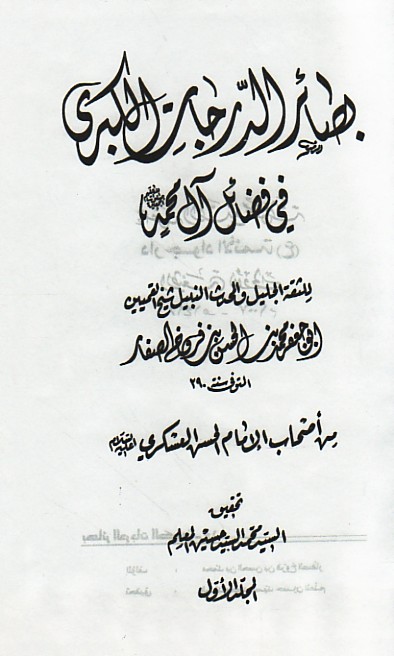 بصائر الدرجات الكبرى
في فضائل آل محمد
للثقة الجليل والمحدث النبيل شيخ القميين
أبي جعفر محمد بن الحسن بن فروخ الصفار
المتوفى سنة ٢٩٠
من أصحاب الإمام الحسن العسكري عليه السلام
تحقيق
السيد محمد السيد حسين المعلم
الجلد الأول